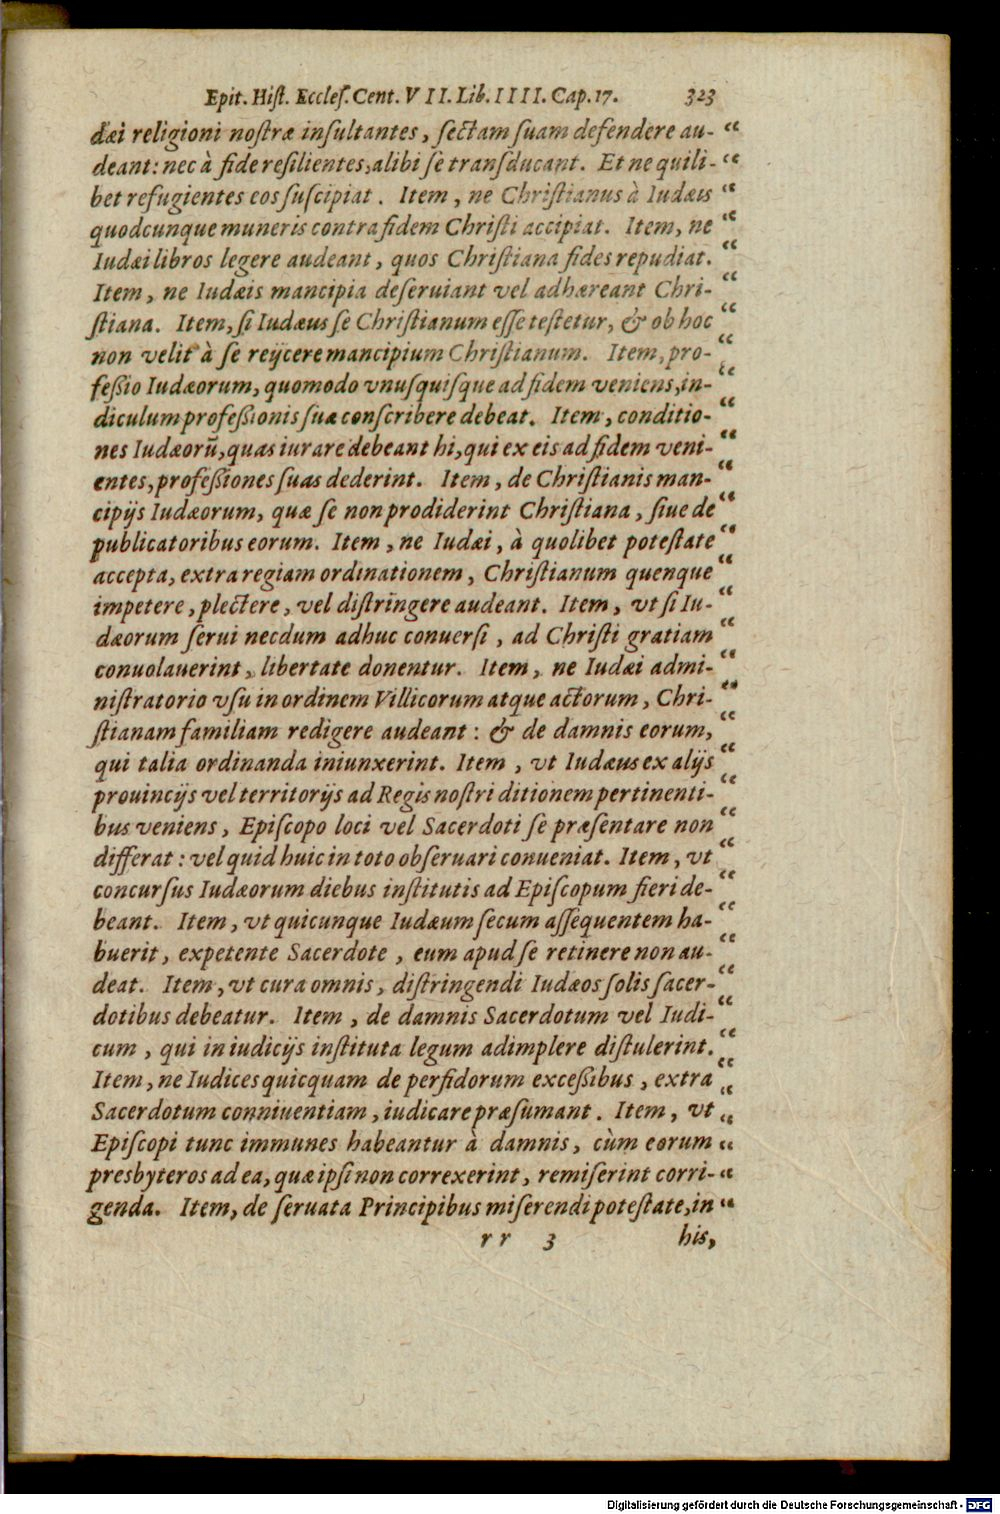 Epit. Hiſt. Eccleſ. Cent. VII. Lib. IIII. Cap. 17. 323
dæi religioni noſtræ inſultantes, ſectam ſuam defendere au- “
deant: nec à fide reſilientes, alibi ſe tranſducant. Et ne quili- “
bet refugientes eos ſuſcipiat. Item, ne Chriſtianus à Iudæis “
quodcunque muneris contra fidem Chriſti accipiat. Item, ne “
Iudæi libros legere audeant, quos Chriſtiana fides repudiat. “
Item, ne Iudæis mancipia deſeruiant vel adhæreant Chri- “
ſtiana. Item, ſi Iudæus ſe Chriſtianum eſſe teſtetur, & ob hoc “
non velit à ſe reijcere mancipium Chriſtianum. Item, pro- “
feßio Iudæorum, quomodo vnuſquiſque ad fidem veniens, in- “
diculum profeßionis ſuæ conſcribere debeat. Item, conditio- “
nes Iudæorũ, quas iurare debeant hi, qui ex eis ad fidem veni- “
entes, profeßiones ſuas dederint. Item, de Chriſtianis man- “
cipijs Iudæorum, quæ ſe non prodiderint Chriſtiana, ſiue de “
publicatoribus eorum. Item, ne Iudæi, à quolibet poteſtate “
accepta, extra regiam ordinationem, Chriſtianum quenque “
impetere, plectere, vel diſtringere audeant. Item, vt ſi Iu- “
dæorum ſerui necdum adhuc conuerſi, ad Chriſti gratiam “
conuolauerint, libertate donentur. Item, ne Iudæi admi- “
niſtratorio vſu in ordinem Villicorum atque actorum, Chri- “
ſtianam familiam redigere audeant: & de damnis eorum, “
qui talia ordinanda iniunxerint. Item, vt Iudæus ex alijs “
prouincijs vel territorijs ad Regis noſtri ditionem pertinenti- “
bus veniens, Epiſcopo loci vel Sacerdoti ſe præſentare non “
differat: vel quid huic in toto obſeruari conueniat. Item, vt “
concurſus Iudæorum diebus inſtitutis ad Epiſcopum fieri de- “
beant. Item, vt quicunque Iudæum ſecum aſſequentem ha- “
buerit, expetente Sacerdote, eum apud ſe retinere non au- “
deat. Item, vt cura omnis, diſtringendi Iudæos ſolis ſacer- “
dotibus debeatur. Item, de damnis Sacerdotum vel Iudi- “
cum, qui in iudicijs inſtituta legum adimplere diſtulerint. “
Item, ne Iudices quicquam de perfidorum exceßibus, extra “
Sacerdotum conniuentiam, iudicare præſumant. Item, vt “
Epiſcopi tunc immunes habeantur à damnis, cùm eorum “
presbyteros ad ea, quæ ipſi non correxerint, remiſerint corri- “
genda. Item, de ſeruata Principibus miſerendi poteſtate, in “
rr 3 his,
Digitalisierung gefördert durch die Deutsche Forschungsgemeinschaft - DFG